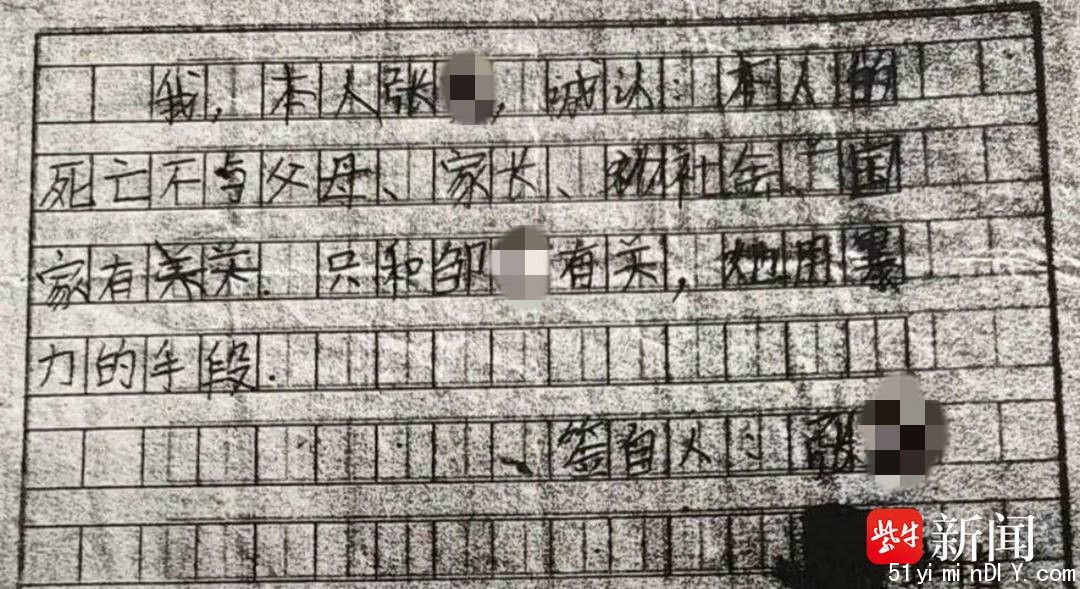 我，本人张，诚认：本人的
死亡不与父母、家长、和社会、国
家有关系.只和邹有关，她用暴
力的手段.
、签自人：张
紫牛新闻
51yiminDIY.com